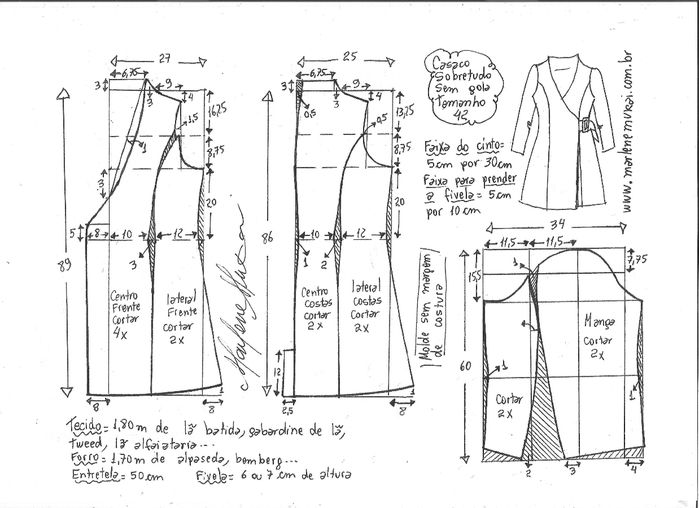 27
6,75
9
3
3
4
16,25
1,5
8,75
1
3
20
5
8
10
12
3
89
Centro
Frente
Cortar
4x
lateral
Frente
cortar
2x
8
8
1
25
6,75
9
3
3
4
0,5
13,25
0,5
8,75
20
10
12
1
2
86
Centro
costas
cortar
2x
lateral
costas
cortar
2x
12
2,5
8
1
Marlene Mukai
Casaco
Sobretudo
Sem gola
Tamanho
42
Faixa do cinto=
5cm por 30cm
Faixa para prender
a fivela = 5cm
por 10cm
www.marlenemukai.com.br
Molde sem margem
de costura
34
11,5
11,5
7,75
15,5
1
60
Manga
cortar
2x
Cortar
2x
1
1
2
3
4
Tecido = 1,80m de lã batida, gabardine de lã,
tweed, lã alfaiataria...
Forro = 1,70m de alpaseda, bemberg...
Entretela = 50cm Fivela = 6 ou 7 cm de altura